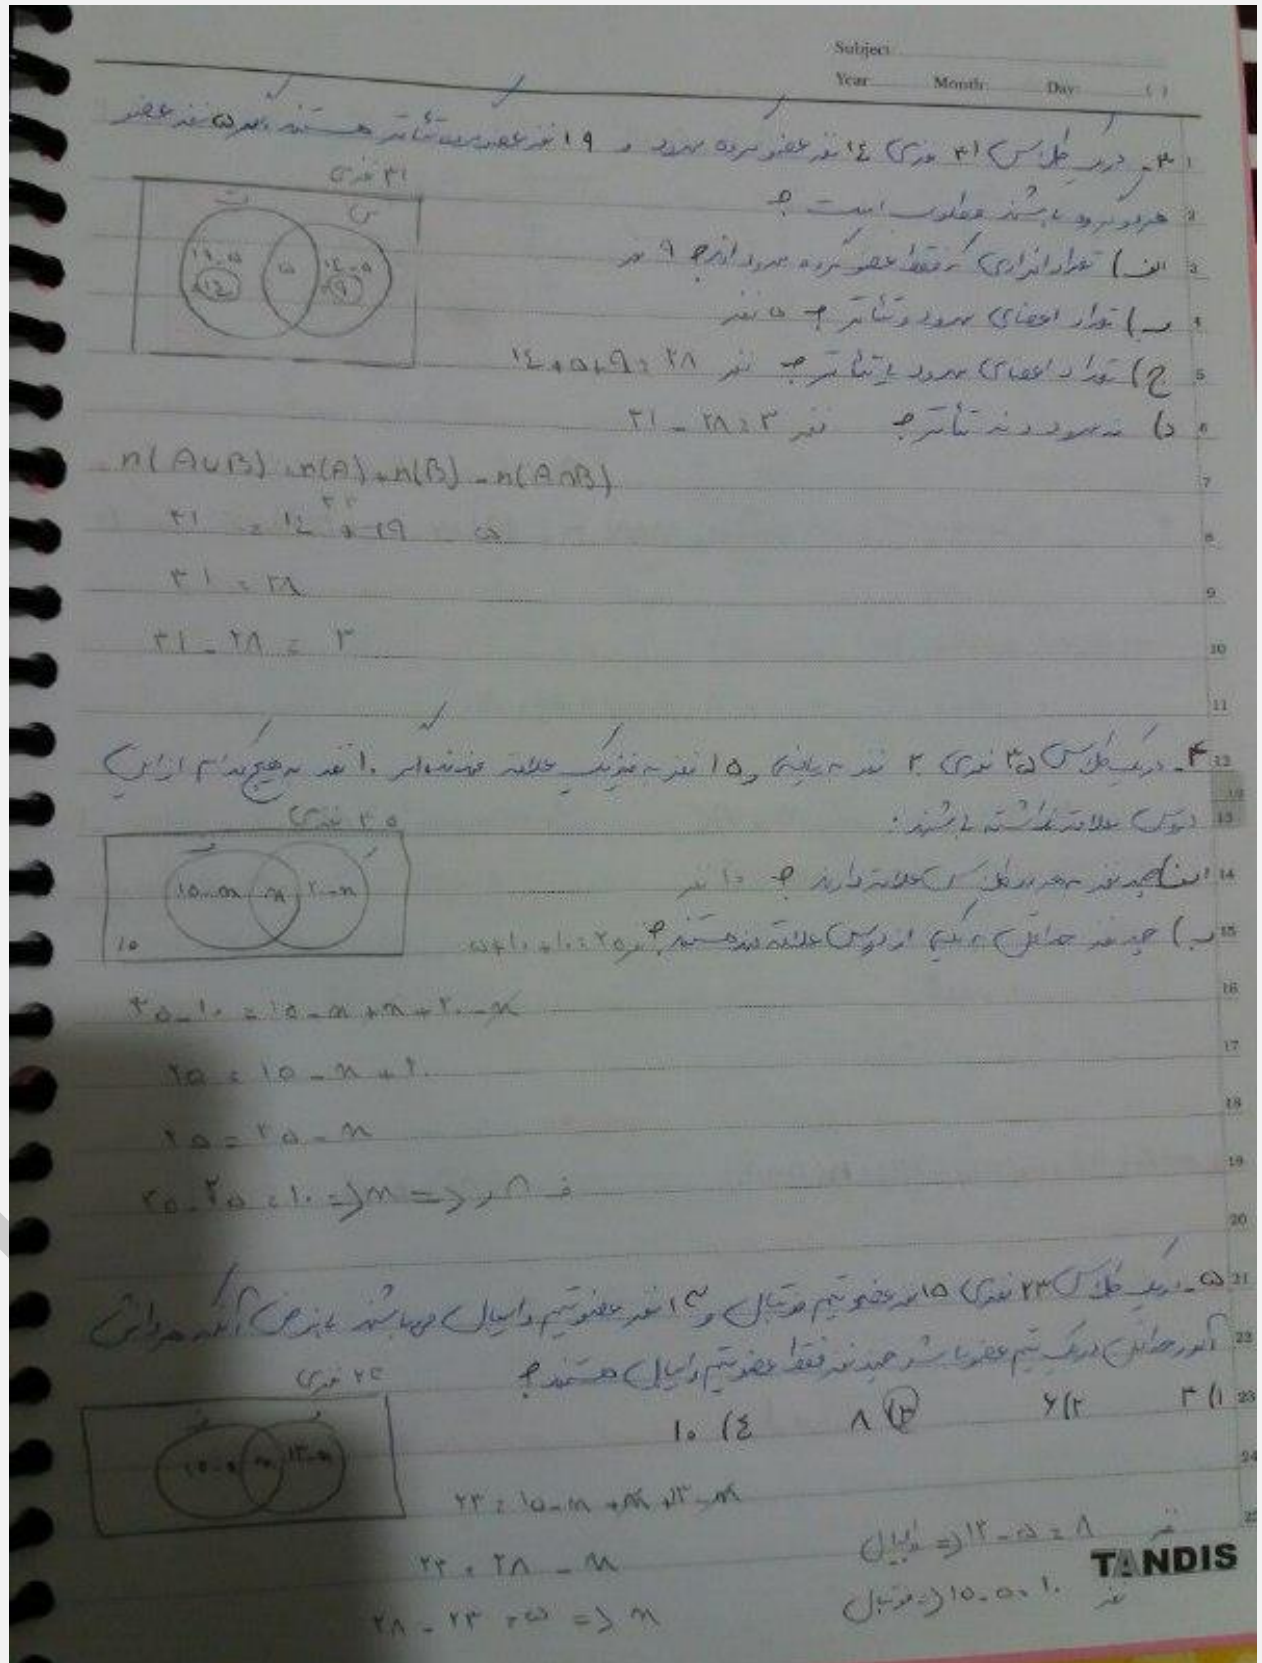 Subject
Year Month Day ( )
۳ـ در یک کلاس ۳۱ نفری ۱۴ نفر عضو گروه سرود و ۱۹ نفر عضو گروه تئاتر هستند اگر ۵ نفر عضو
۳۱ نفری
هر دو گروه باشند مطلوب است؟
ت س
الف) تعداد افرادی که فقط عضو گروه سرود اند؟ ۹ نفر
۱۹-۵ ۵ ۱۴-۵
۱۴ ۹
ب) تعداد اعضای سرود و تئاتر؟ ۵ نفر
ج) تعداد اعضای سرود یا تئاتر؟ نفر ۱۴+۵+۹=۲۸
د) نه سرود و نه تئاتر؟ نفر ۳۱-۲۸=۳
n(A∪B)=n(A)+n(B)-n(A∩B)
۳۳
۳۱ = ۱۴ + ۱۹ - ۵
۳۱ = ۲۸
۳۱ - ۲۸ = ۳
۴ـ در یک کلاس ۳۵ نفری ۲۰ نفر به ریاضی و ۱۵ نفر به فیزیک علاقه مندند اگر ۱۰ نفر به هیچ کدام از این
۳۵ نفری
دروس علاقه نداشته باشند:
ف ر
الف) چند نفر به هر دو درس علاقه دارند؟ ۱۰ نفر
۱۵-n n ۲۰-n
ب) چند نفر حداقل به یکی از دروس علاقه مند هستند؟ ۵+۱۰+۱۰=۲۵
۱۰
۳۵-۱۰ = ۱۵-n+n+۲۰-n
۲۵ = ۱۵-n+۲۰
۲۵ = ۳۵-n
۳۵-۲۵=۱۰ => n => ف ∩ ر
۵ـ در یک کلاس ۲۳ نفری ۱۵ نفر عضو تیم فوتبال و ۱۳ نفر عضو تیم والیبال می باشند با فرض آنکه هر دانش
آموز حداقل در یک تیم عضو باشد چند نفر فقط عضو تیم والیبال هستند؟
۲۳ نفری
۱) ۳ ۲) ۶ ۳) ۸ ۴) ۱۰
ف و
۱۵-n n ۱۳-n
۲۳ = ۱۵-n+n+۱۳-n
۲۳ = ۲۸-n
نفر ۱۳-۵=۸ => والیبال
۲۸-۲۳=۵ => n
نفر ۱۵-۵=۱۰ => فوتبال
TANDIS